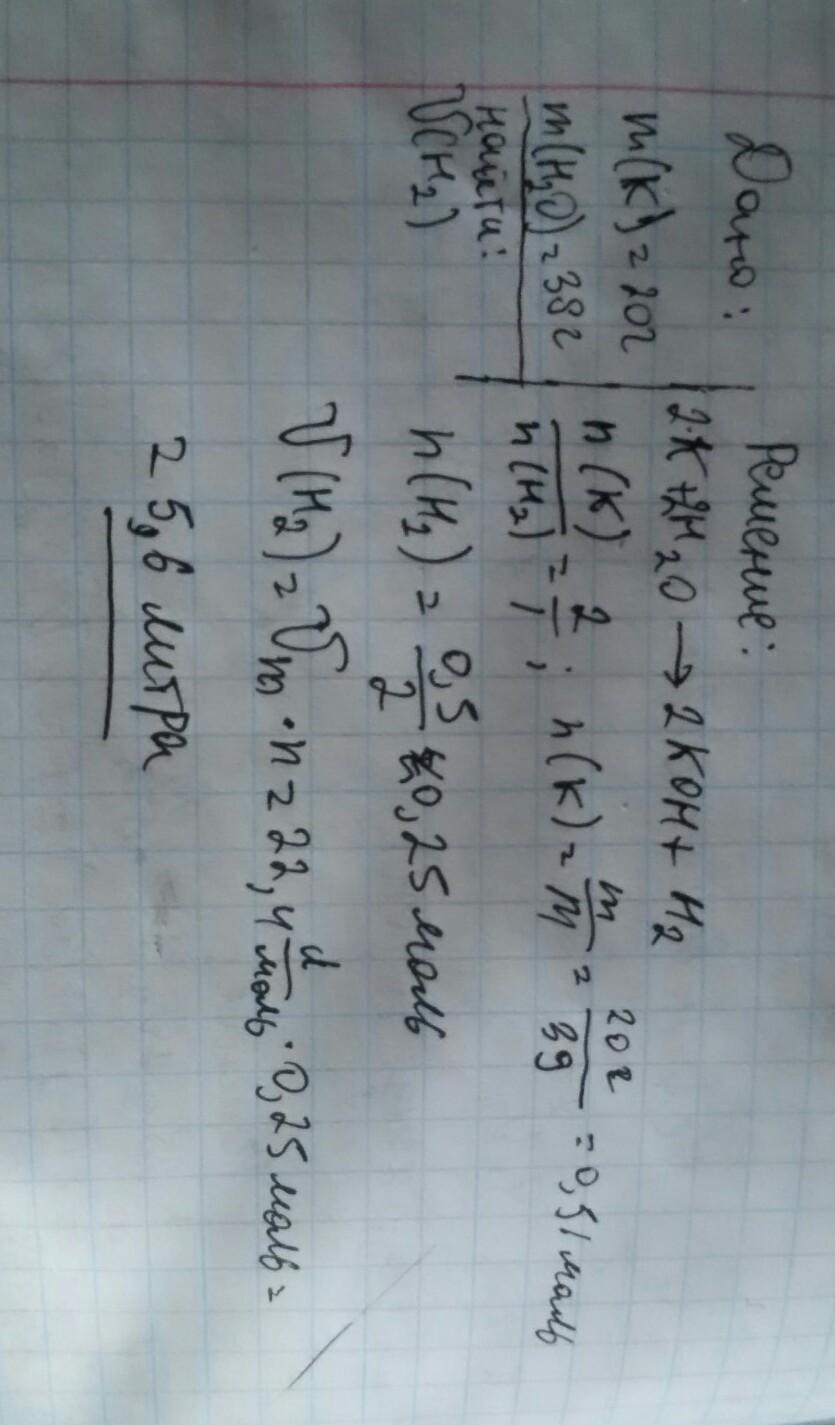 Дано:
m(K) = 20г
m(H₂O) = 38г
найти:
V(H₂)
Решение:
2K + 2H₂O → 2KOH + H₂
n(K)/n(H₂) = 2/1; n(K) = m/M = 20г/39 = 0,51 моль
n(H₂) = 0,5/2 = 0,25 моль
V(H₂) = Vm · n = 22,4 л/моль · 0,25 моль =
= 5,6 литра